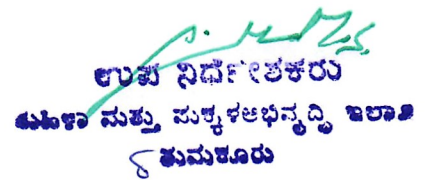 ಉಪ ನಿರ್ದೇಶಕರು
ಮಹಿಳಾ ಮತ್ತು ಮಕ್ಕಳ ಅಭಿವೃದ್ಧಿ ಇಲಾಖೆ
ತುಮಕೂರು